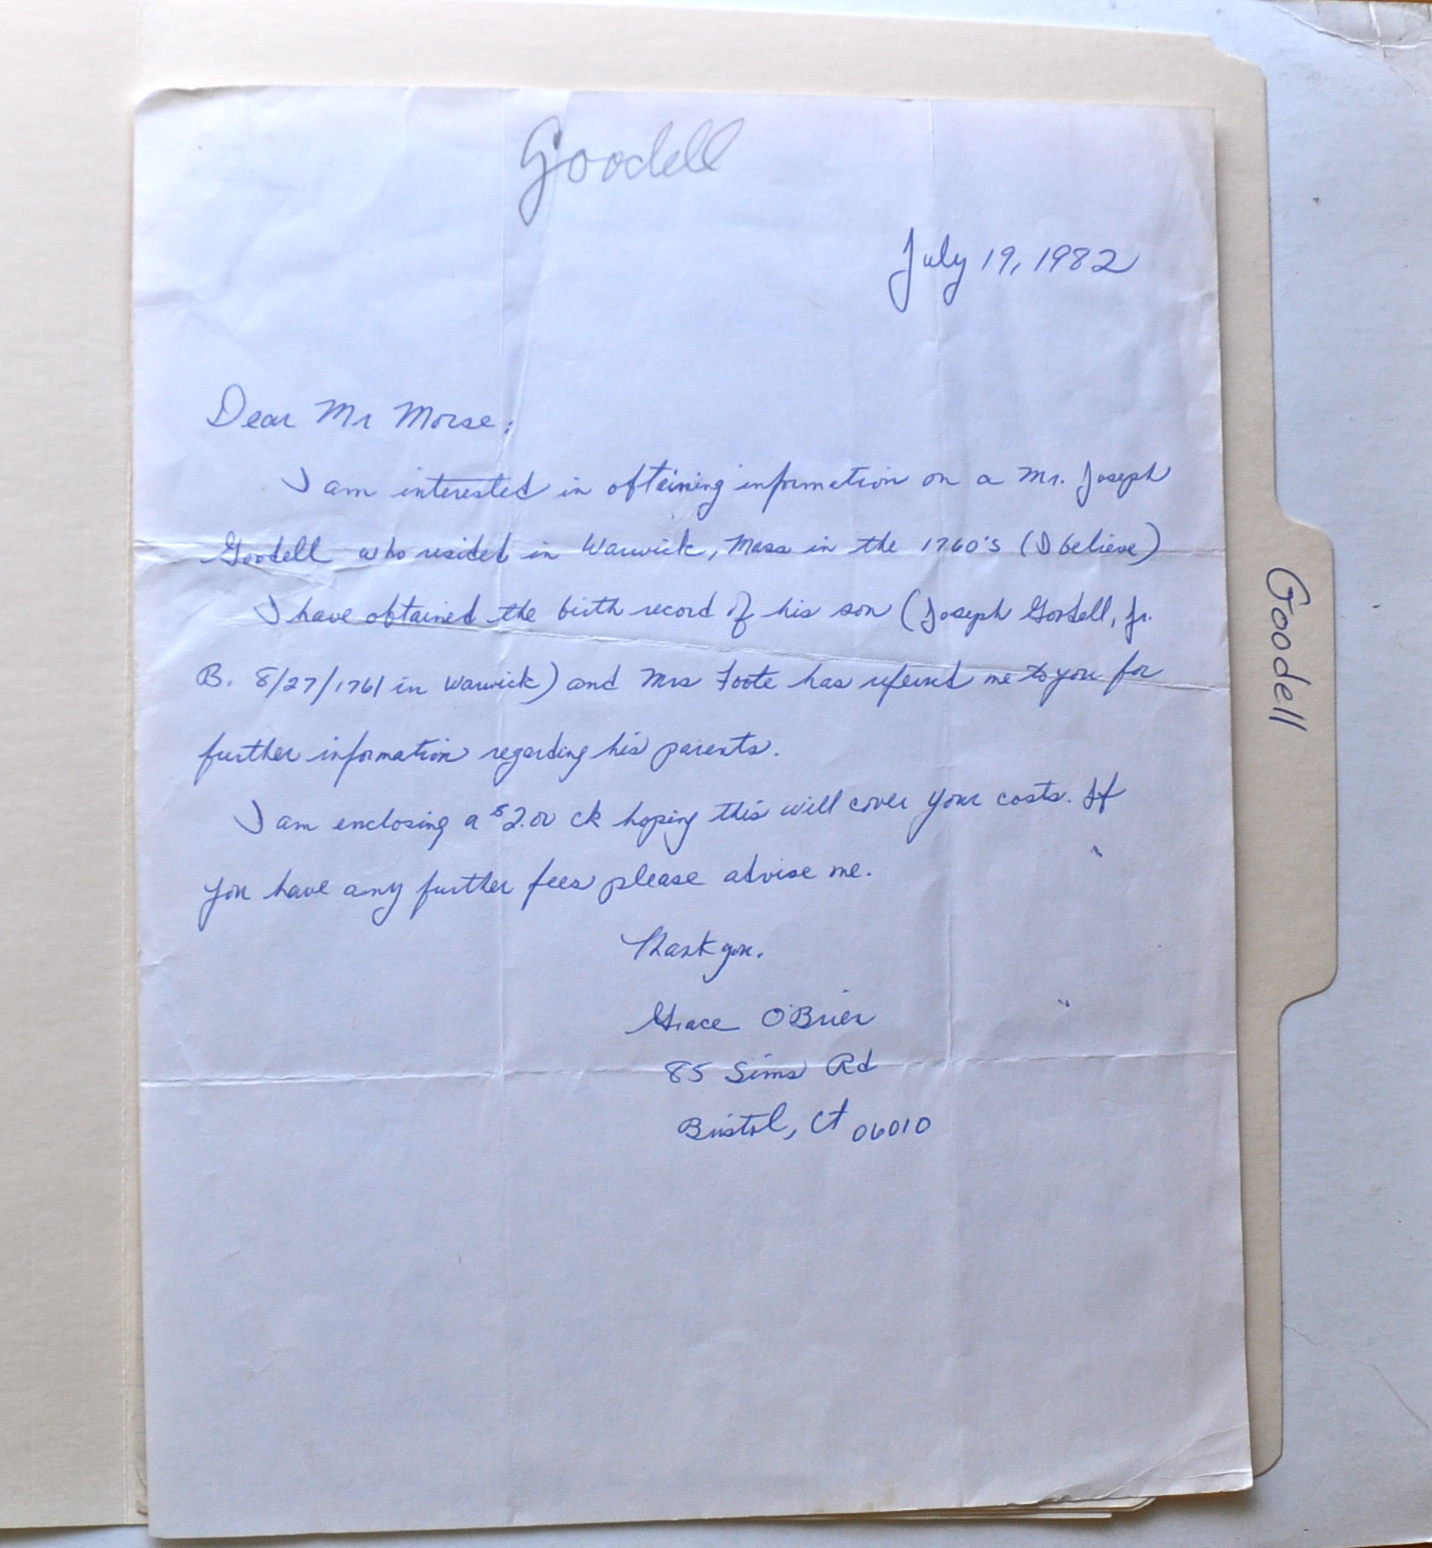 Goodell
July 19, 1982
Dear Mr Morse:
I am interested in obtaining information on a Mr. Joseph
Goodell who resided in Warwick, Mass in the 1760's (I believe)
I have obtained the birth record of his son (Joseph Goodell, Jr.
B. 8/27/1761 in Warwick) and Mrs Foote has referred me to you for
further information regarding his parents.
I am enclosing a $2.00 ck hoping this will cover your costs. If
you have any further fees please advise me.
Thank you.
Grace O'Brien
85 Sims Rd
Bristol, Ct 06010
Goodell